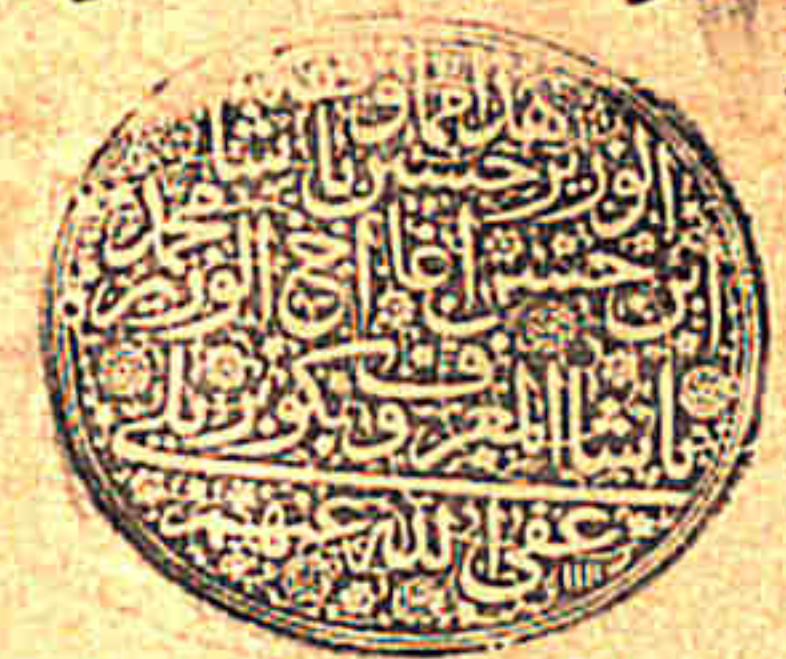 هذا مما وقف
الوزير حسين باشا
ابن حسن اغا اخ الوزير محمد
باشا المعروف بكوبريلي
عفى الله عنهم ١١١١